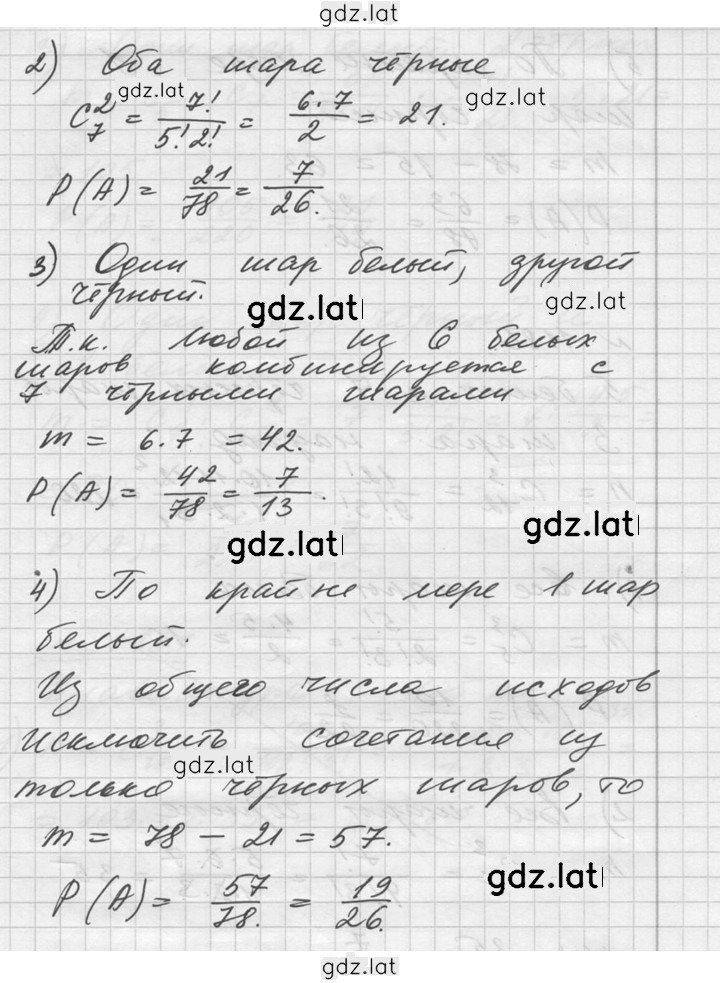 gdz.lat
2) Оба шара чёрные
gdz.lat
gdz.lat
C₇² = 7!/5!2! = 6·7/2 = 21.
P(A) = 21/78 = 7/26.
3) Один шар белый, другой
чёрный.
gdz.lat
gdz.lat
Т.к. любой из 6 белых
шаров комбинируется с
7 чёрными шарами
m = 6·7 = 42.
P(A) = 42/78 = 7/13.
gdz.lat
gdz.lat
4) По крайне мере 1 шар
белый.
Из общего числа исходов
исключить сочетания из
gdz.lat
только чёрных шаров, то
m = 78 – 21 = 57.
P(A) = 57/78. = 19/26.
gdz.lat
gdz.lat